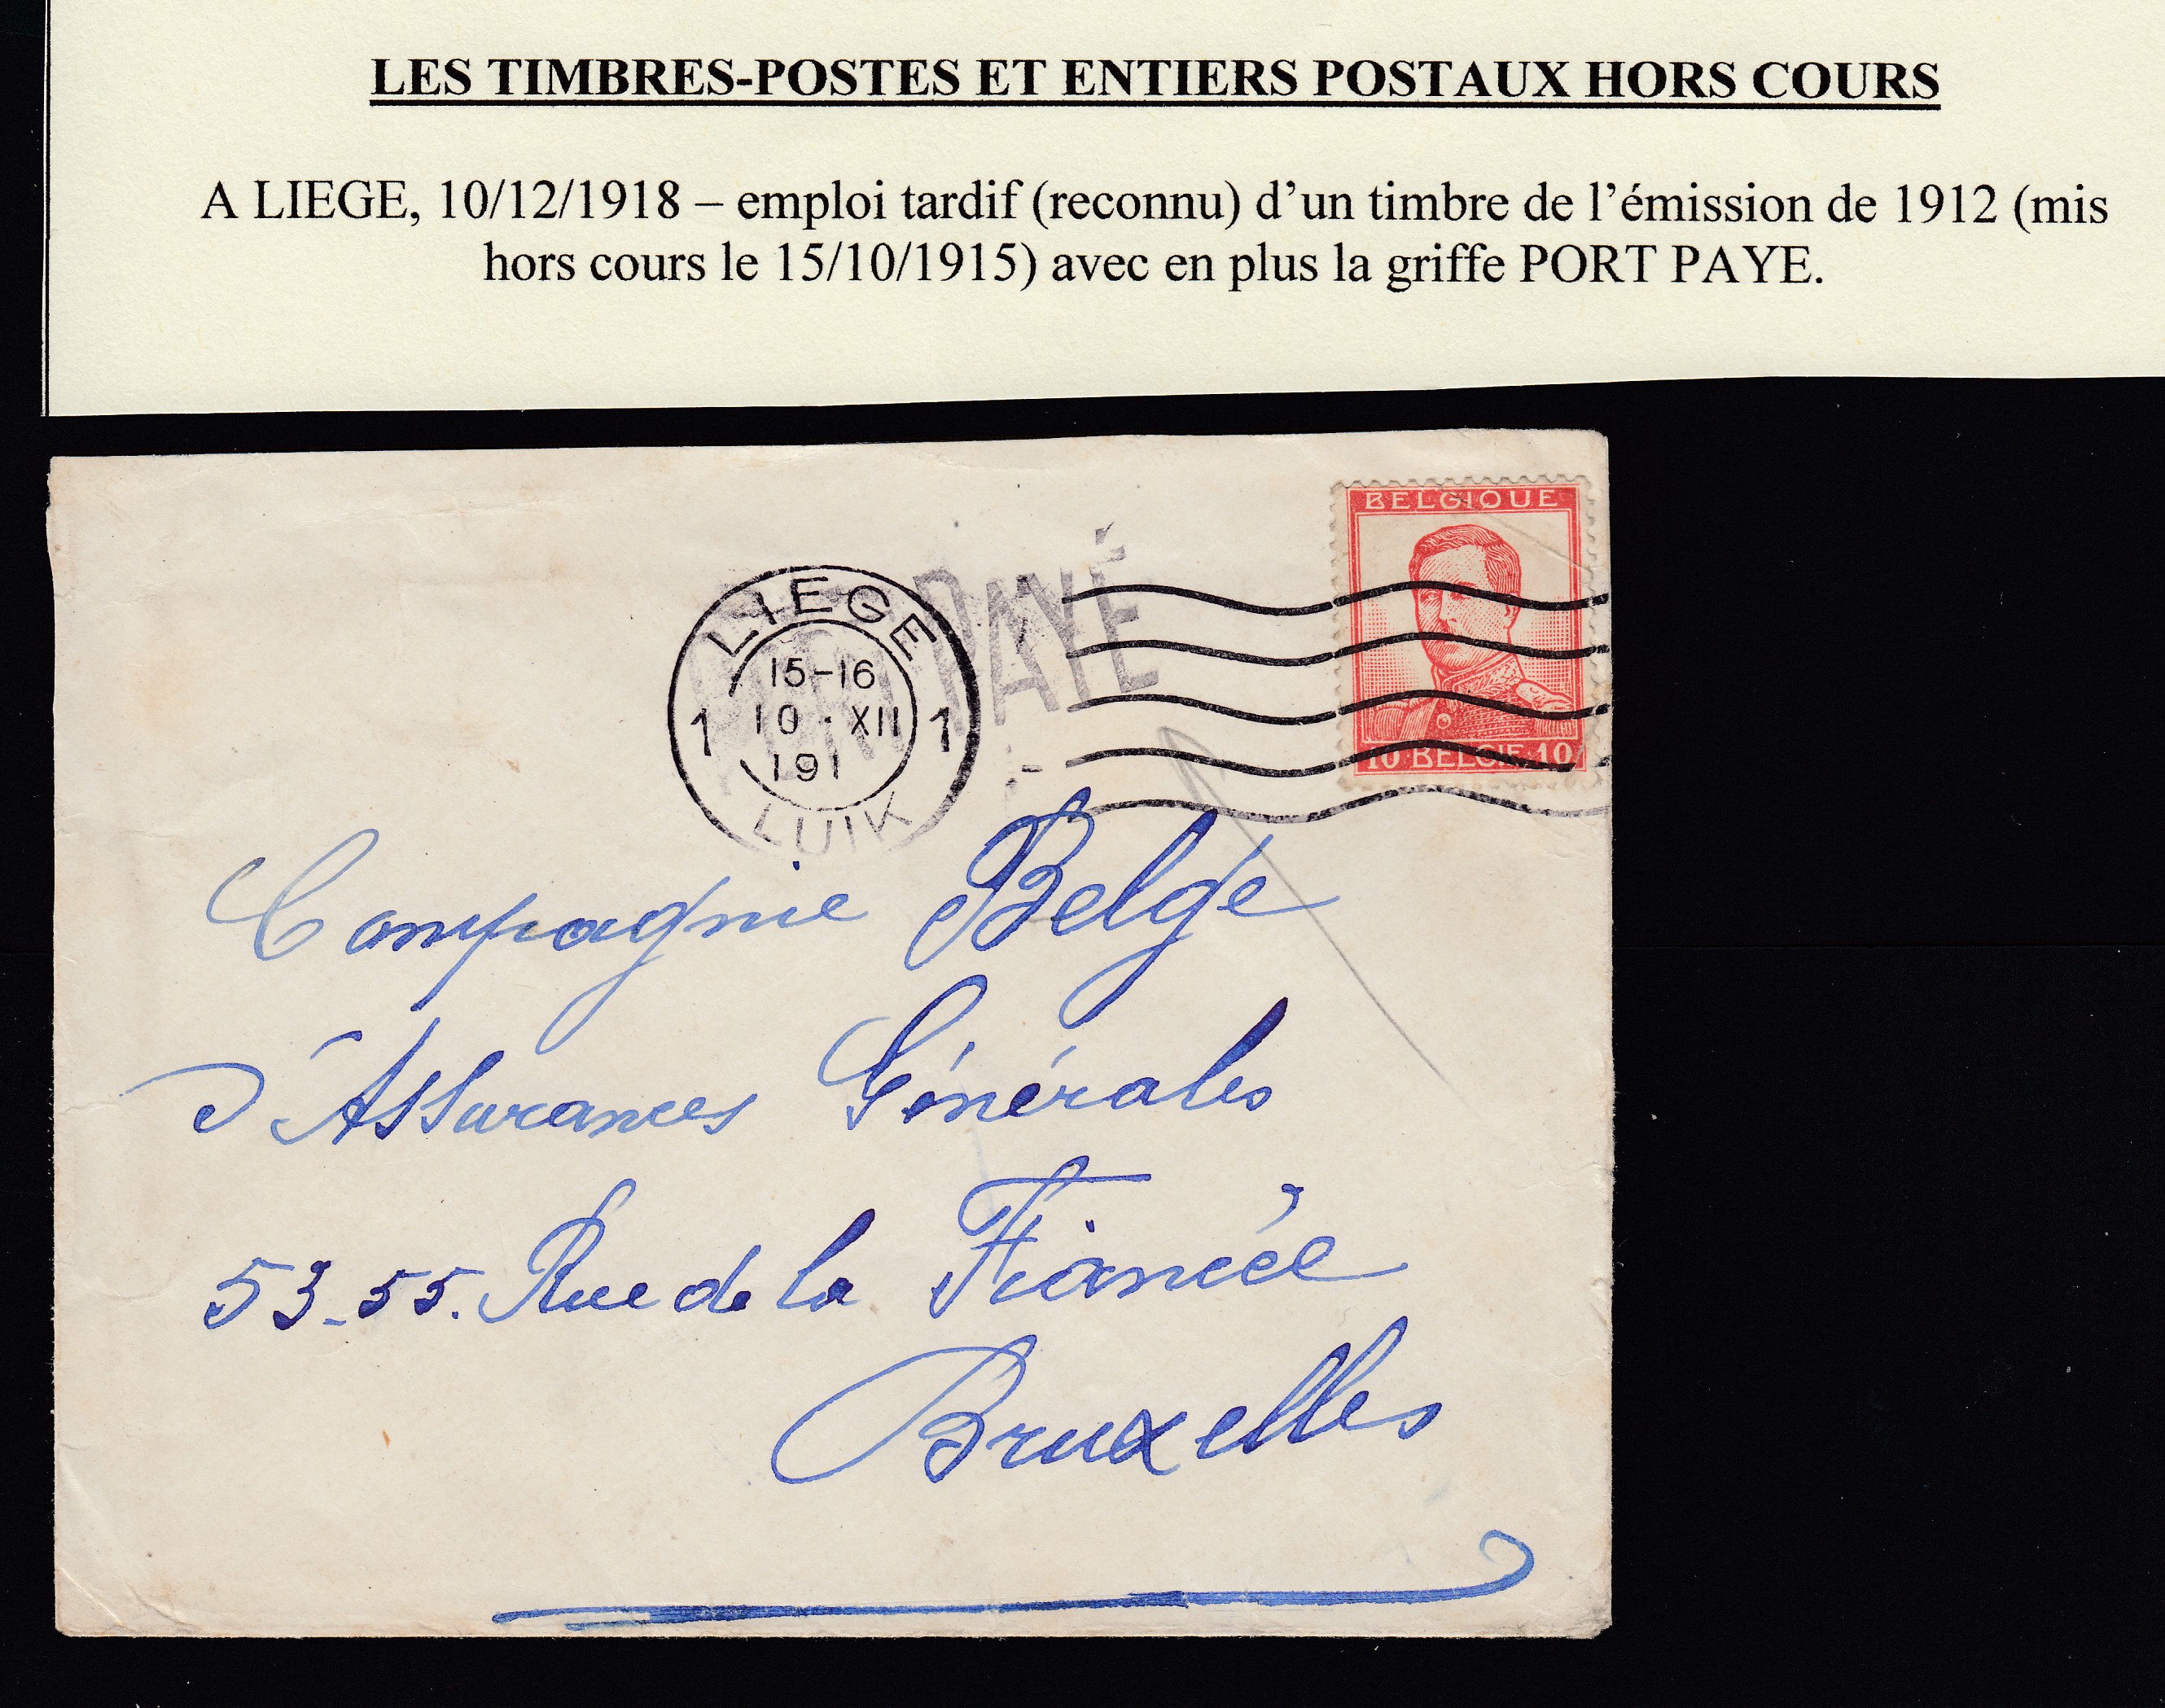 LES TIMBRES-POSTES ET ENTIERS POSTAUX HORS COURS
A LIEGE, 10/12/1918 – emploi tardif (reconnu) d’un timbre de l’émission de 1912 (mis
hors cours le 15/10/1915) avec en plus la griffe PORT PAYE.
BELGIQUE
10 BELGIE 10
PORT PAYÉ
LIEGE
15-16
1 10 · XII 1
191
LUIK
Compagnie Belge
d'Assurances Générales
53-55. Rue de la Fiancée
Bruxelles